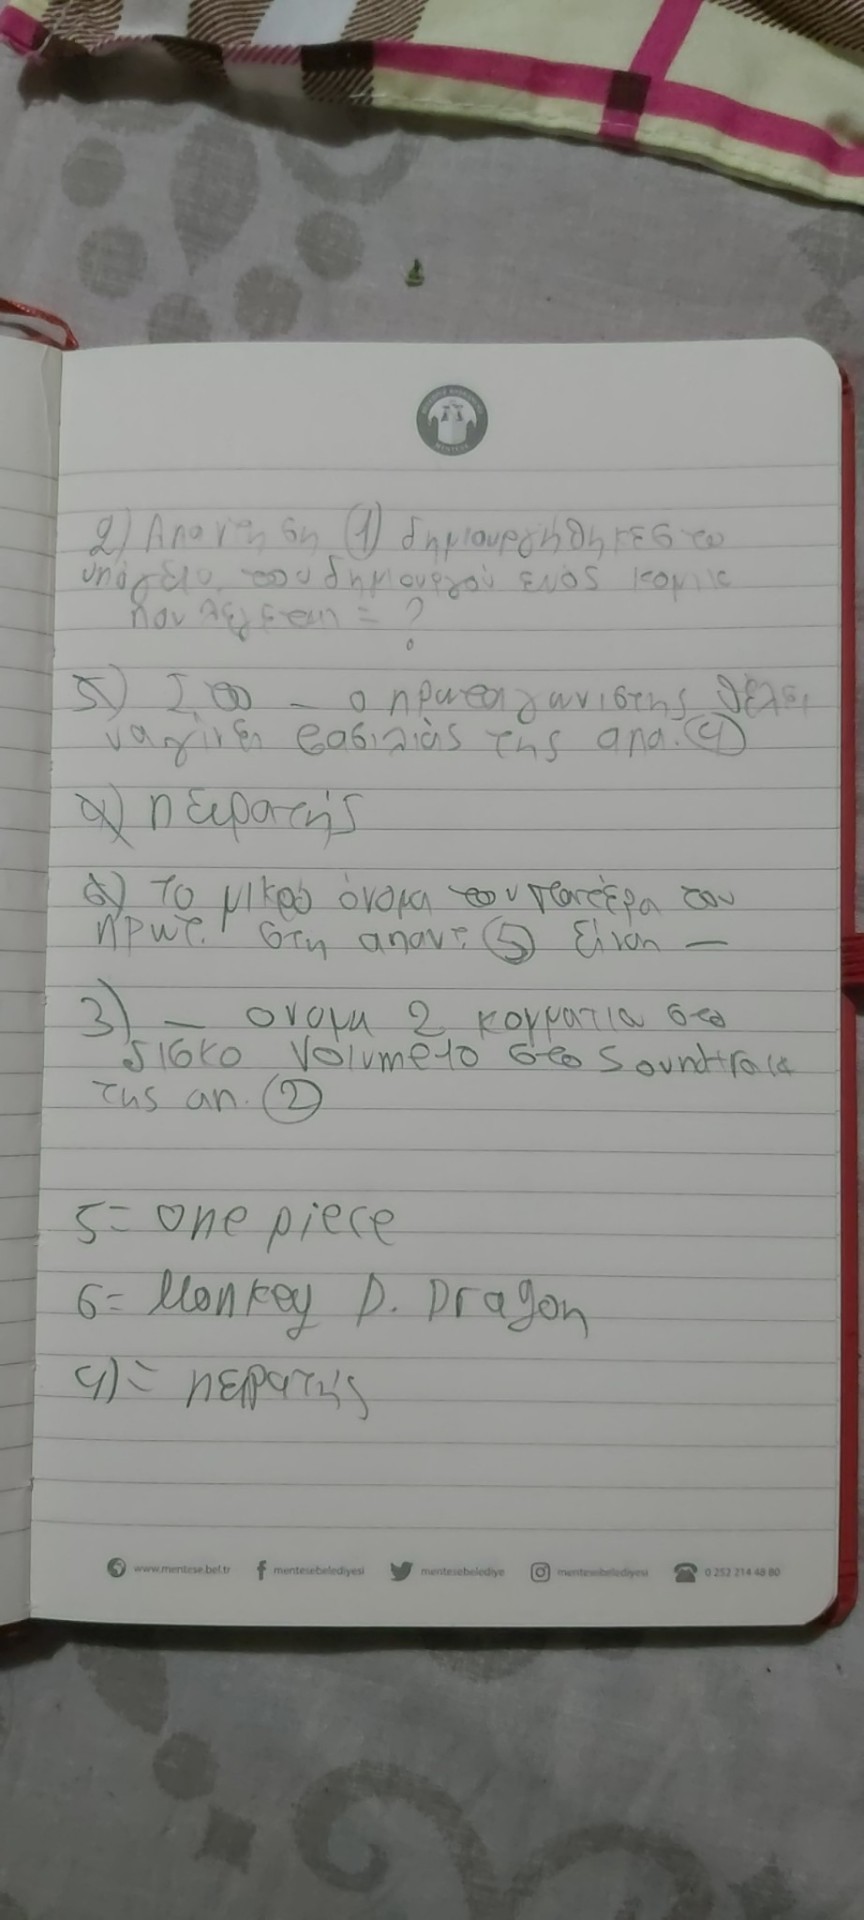 2) Απαντηση (1) δημιουργηθηκε στο
υπόγειο του δημιουργού ενός κομικ
που λέγεται = ?
5) Στο _ ο πρωταγωνιστης θέλει
να γίνει βασιλιάς της απα. (4)
4) πειρατής
6) το μικρό όνομα του πατέρα του
πρωτ. στη απαντ (5) είναι _
3) _ ονομα 2 κομματια στο
δισκο Volume 10 στο Soundtrack
της απ. (2)
5= One piece
6= Monkey D. Dragon
4) = πειρατής
MENTEŞE
www.mentese.bel.tr mentesebelediyesi mentesebelediye mentesebelediyesi 0 252 214 48 80